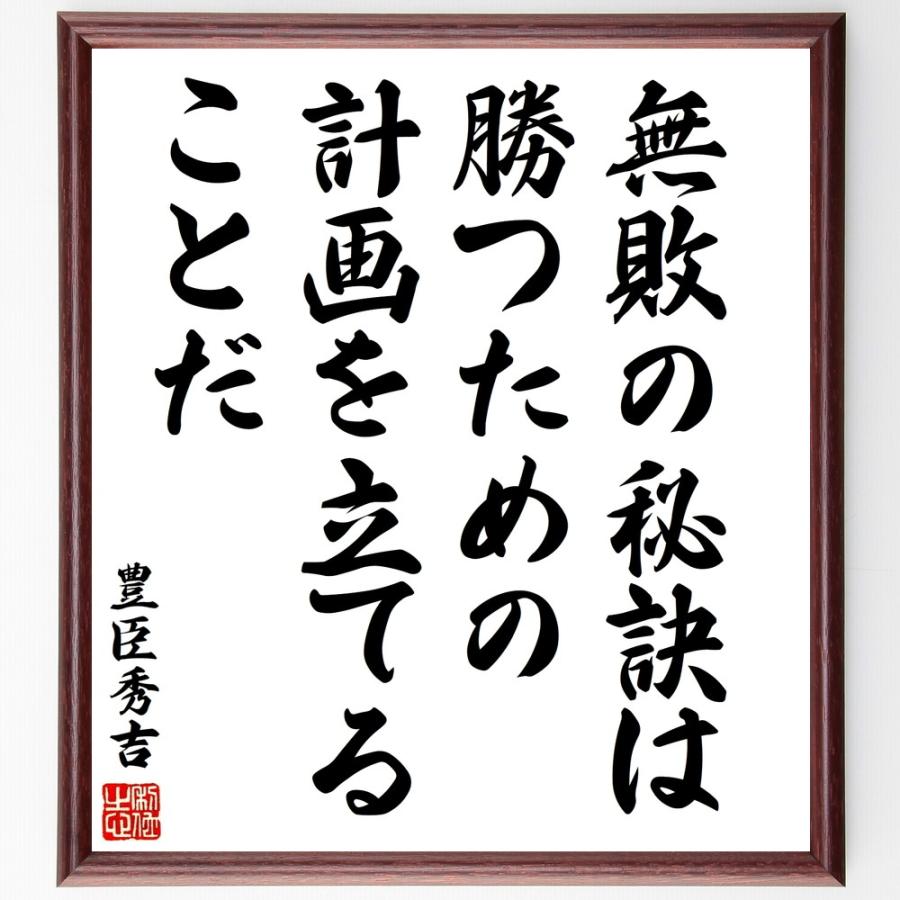 無敗の秘訣は
勝つための
計画を立てる
ことだ
豊臣秀吉